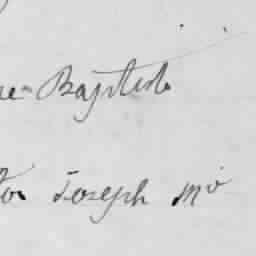 ne-Baptiste
Joseph Mo